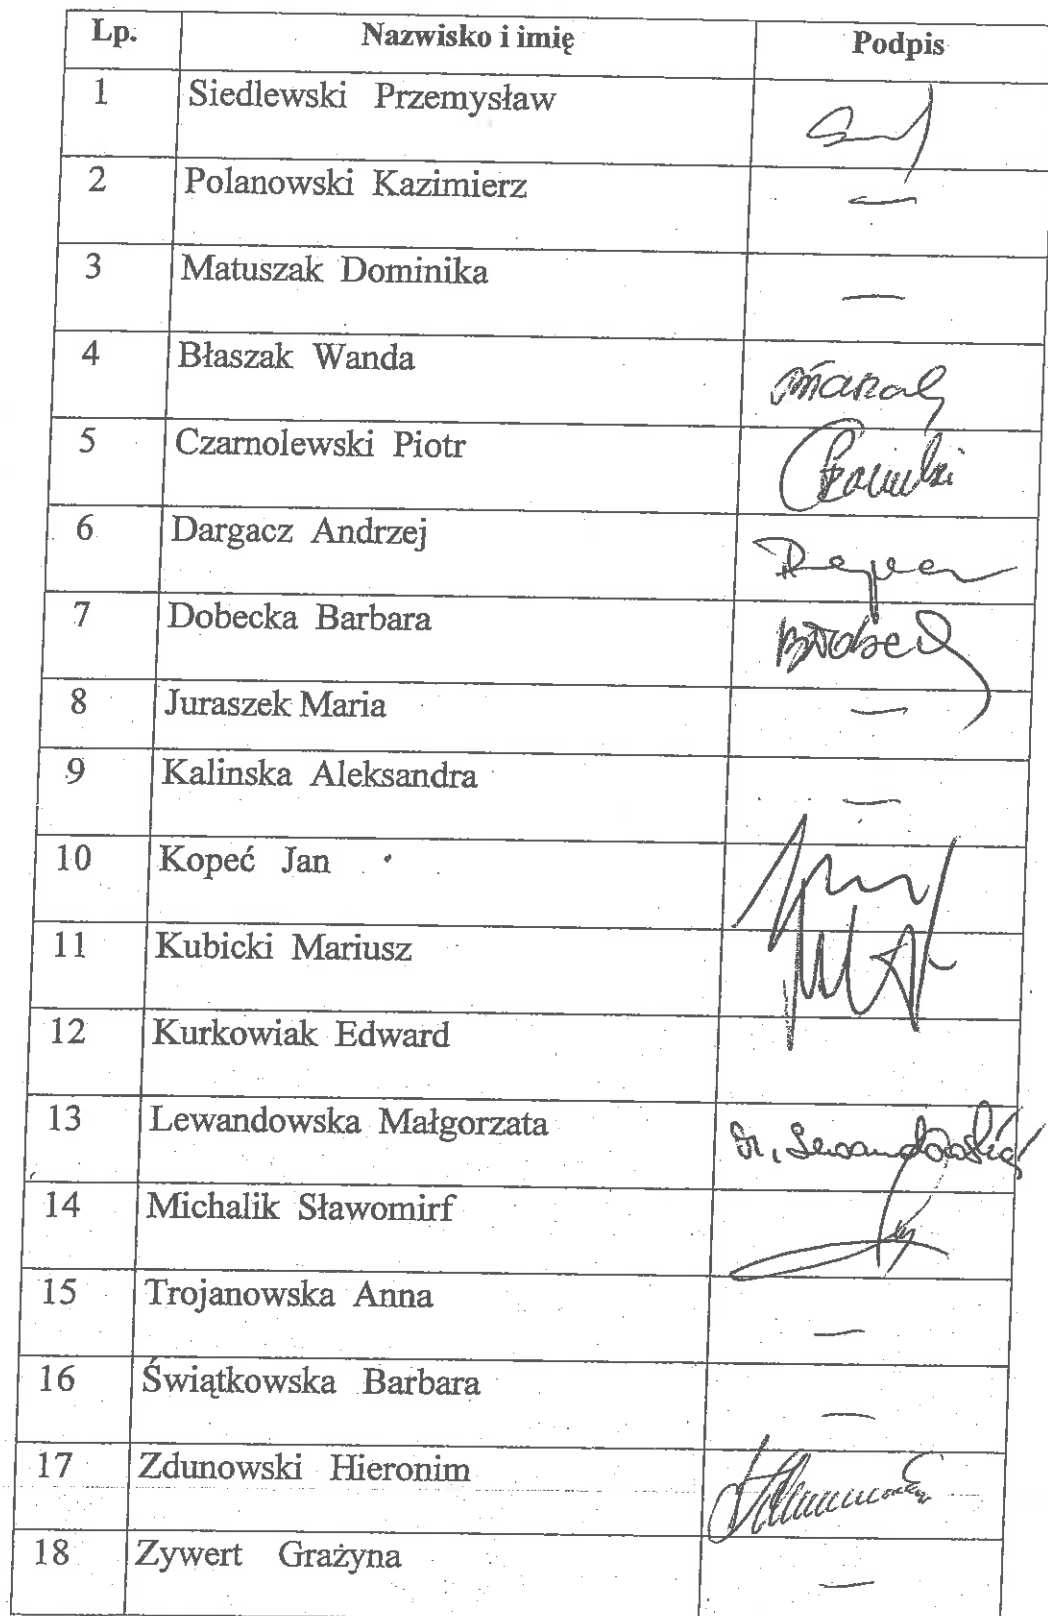 Lp. Nazwisko i imię Podpis
1 Siedlewski Przemysław
2 Polanowski Kazimierz —
3 Matuszak Dominika —
4 Błaszak Wanda
5 Czarnolewski Piotr
6 Dargacz Andrzej
7 Dobecka Barbara
8 Juraszek Maria —
9 Kalinska Aleksandra —
10 Kopeć Jan
11 Kubicki Mariusz
12 Kurkowiak Edward
13 Lewandowska Małgorzata M. Lewandowska
14 Michalik Sławomirf
15 Trojanowska Anna —
16 Świątkowska Barbara —
17 Zdunowski Hieronim
18 Zywert Grażyna —